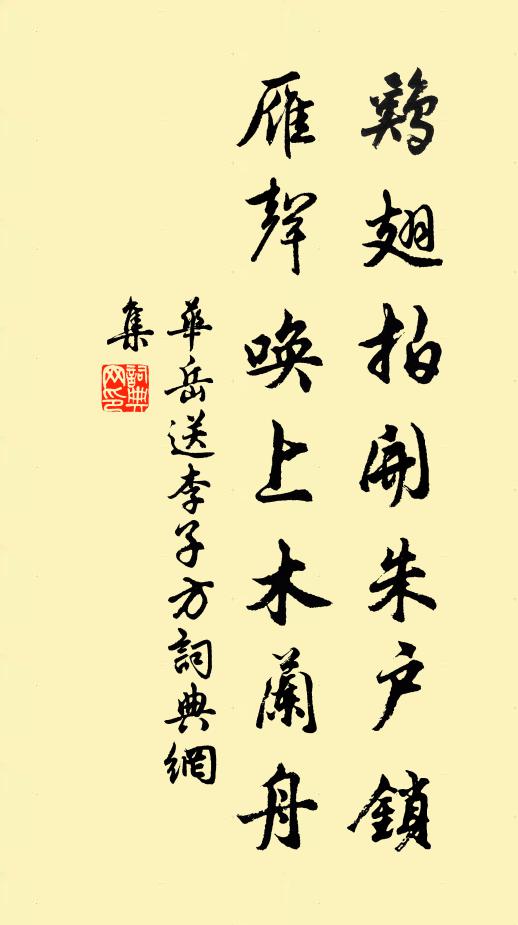 鷄翅拍開朱户鎖
雁聲喚上木蘭舟
華岳送李子方詞典網
集
詞典
网印